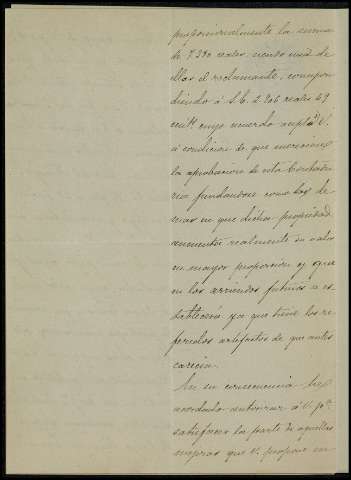 proporcionalmente la suma
de 7.380 reales, siendo una de
ellas el reclamante, correspon
diendo á S.E. 2.206 reales 69
cent.s cuyo acuerdo aceptó V.
á condicion de que mereciese
la aprobacion de esta Contadu
ria fundandose como los de
mas en que dicha propiedad
aumentó realmente su valor
en mayor proporcion y que
en los arriendos futuros se es
tableceria ya que tiene los re
feridos artefactos de que antes
carecia.
En su consecuencia he
acordado autorizar á V. p.a
satisfacer la parte de aquellas
mejoras que V. propone en